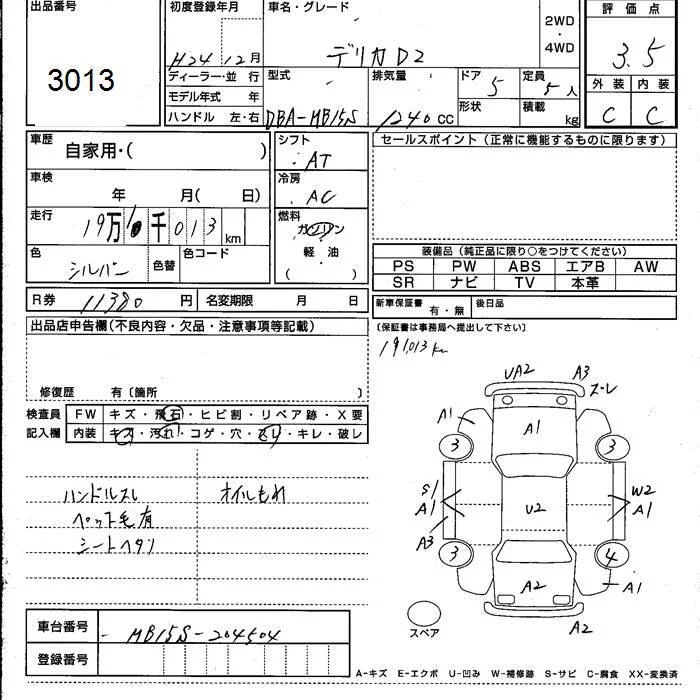 出品番号
3013
初度登録年月
H24 12月
車名・グレード
デリカD2
2WD
・
4WD
評価点
3.5
外装 内装
C C
ディーラー・並行
モデル年式 年
ハンドル 左・右
型式
DBA-MB15S
排気量
1240cc
ドア
5
形状
定員
5人
積載
kg
車歴
自家用・( )
車検
年 月( 日)
走行
19万 千013km
色
シルバー
色替
色コード
シフト
AT
冷房
AC
燃料
ガソリン
・
軽油
( )
セールスポイント(正常に機能するものに限ります)
装備品(純正品に限り○をつけてください)
PS PW ABS エアB AW
SR ナビ TV 本革
R券 11380円
名変期限 月 日
新車保証書 有・無
後日品
(保証書は事務局へ提出して下さい)
出品店申告欄(不良内容・欠品・注意事項等記載)
修復歴 有〔箇所 〕
191,013km
検査員
記入欄
FW キズ・飛石・ヒビ割・リペア跡・X要
内装 キズ・汚れ・コゲ・穴・スリ・キレ・破レ
ハンドルスレ
ペット毛有
シートヘタリ
オイルもれ
UA2
A3
ズーレ
A1
A1
3
3
S1
A1
A3
U2
W2
A1
3
4
A2
A1
A2
スペア
車台番号
MB15S-204504
登録番号
A-キズ E-エクボ U-凹み W-補修跡 S-サビ C-腐食 XX-変換済